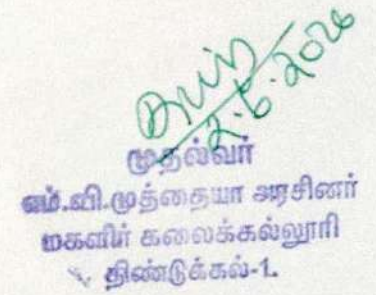 2.6.2026
முதல்வர்
எம்.வி.முத்தையா அரசினர்
மகளிர் கலைக்கல்லூரி
திண்டுக்கல்-1.